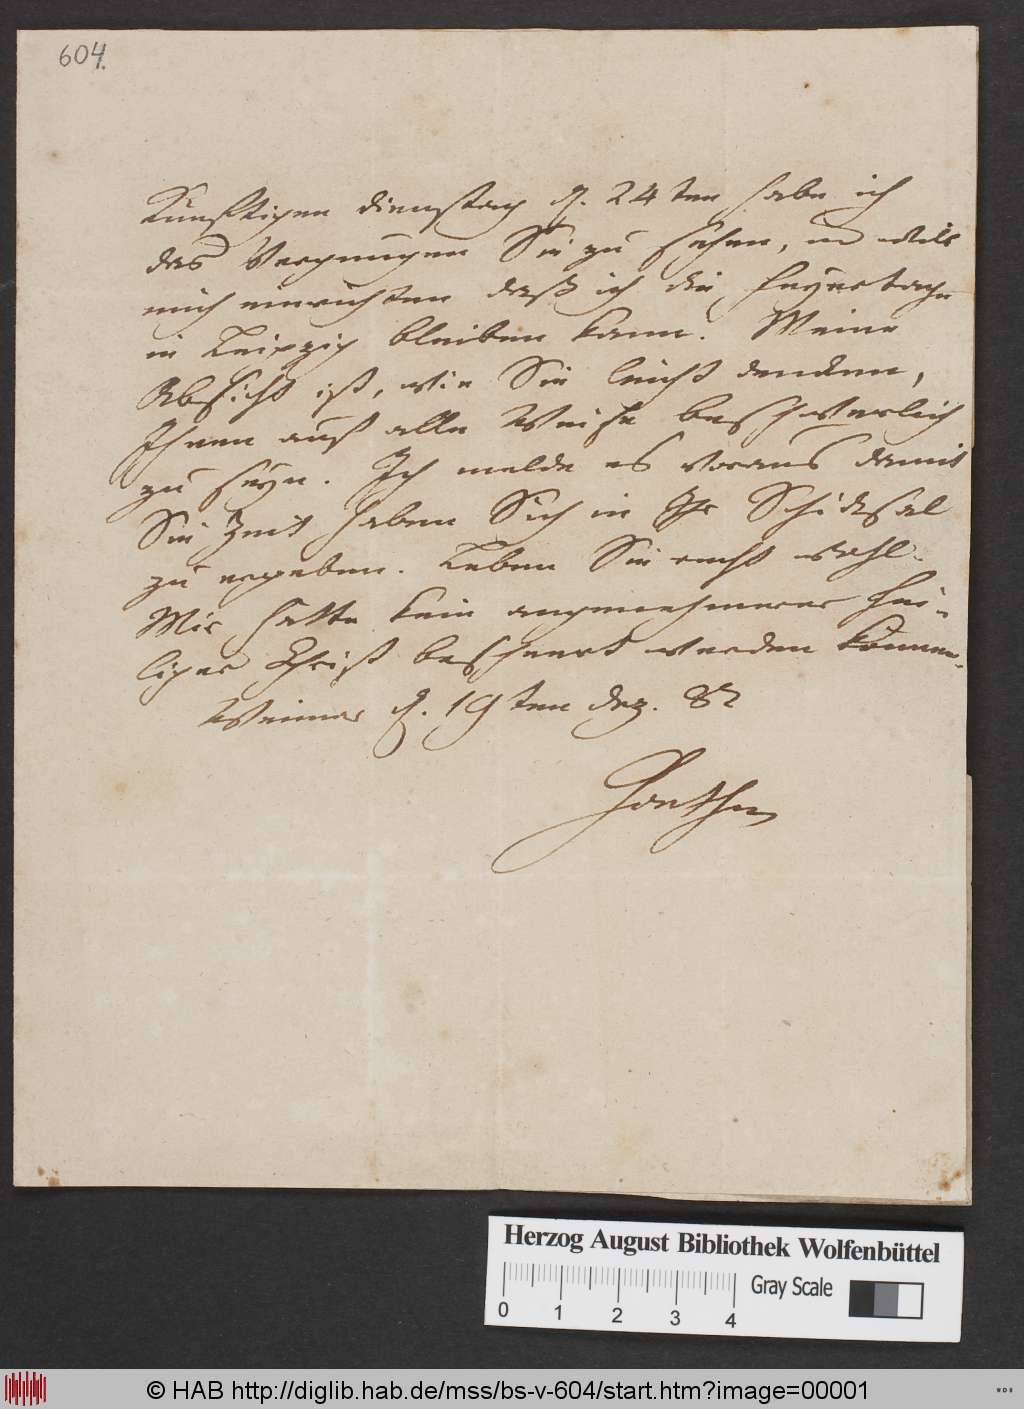 604.
Künfftigen Dienstag d. 24ten habe ich
das Vergnügen Sie zu sehen, und will
mich einrichten daß ich die Feyertage
in Leipzig bleiben kann. Meine
Absicht ist, wie Sie leicht dencken,
Ihnen auf alle Weise beschwerlich
zu seyn. Ich melde es voraus damit
Sie Zeit haben Sich in Ihr Schicksal
zu ergeben. Leben Sie recht wohl.
Mir hätte kein angenehmerer hei-
liger Christ bescheert werden können.
Weimar d. 19ten Dez. 82
Goethe
Herzog August Bibliothek Wolfenbüttel
Gray Scale
0 1 2 3 4
© HAB http://diglib.hab.de/mss/bs-v-604/start.htm?image=00001